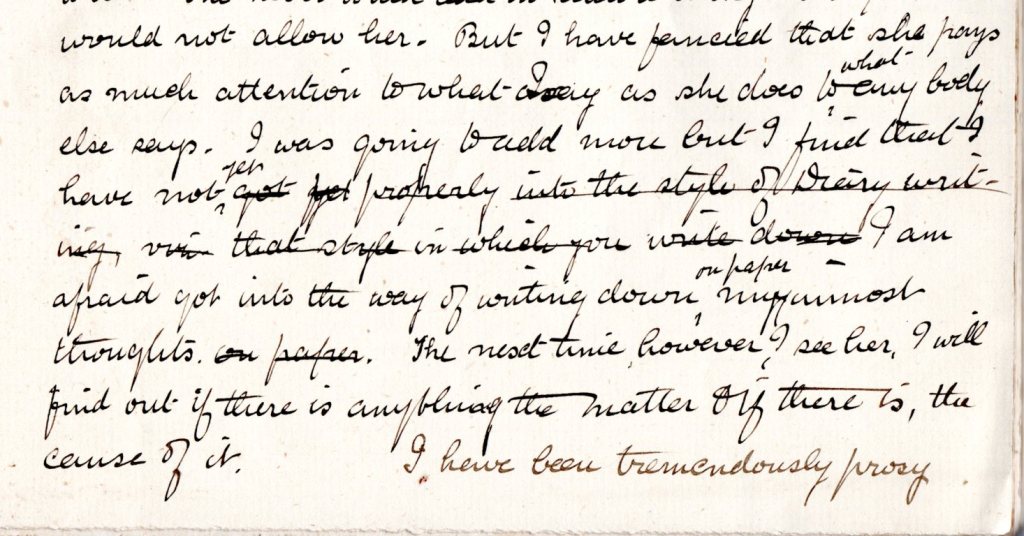 would not allow her. But I have fancied that she pays
as much attention to what I say as she does to what any body
else says. I was going to add more but I find that I
have not yet got yet properly into the style of Diary writ-
ing, viz. that style in which you write down I am
afraid got into the way of writing down on paper my inmost
thoughts. on paper. The next time, however, I see her, I will
find out if there is anything the matter & if there is, the
cause of it. I have been tremendously prosy